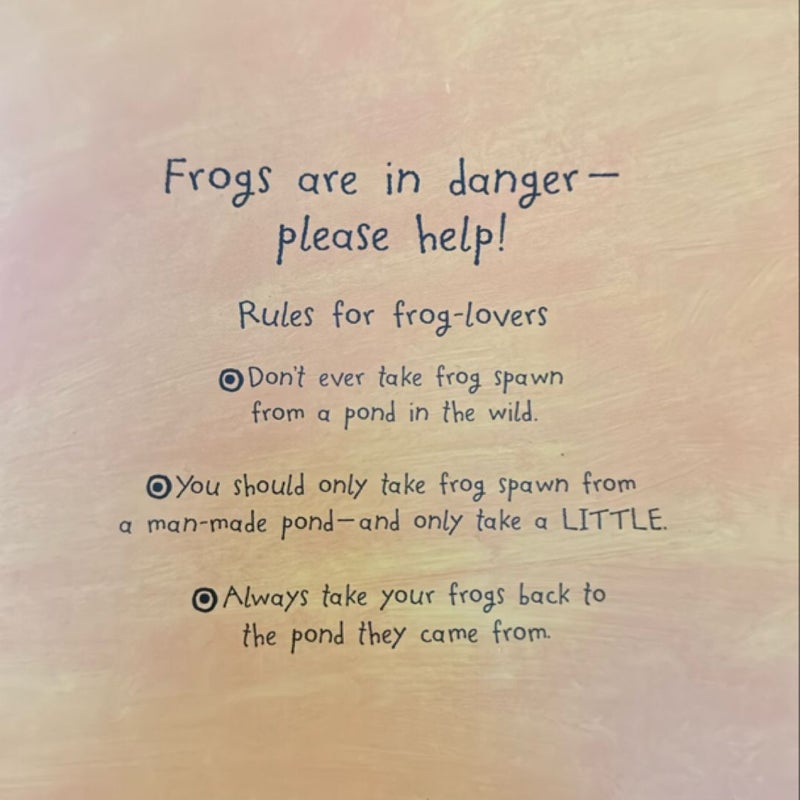 Frogs are in danger—
please help!
Rules for frog-lovers
Don't ever take frog spawn
from a pond in the wild.
You should only take frog spawn from
a man-made pond—and only take a LITTLE.
Always take your frogs back to
the pond they came from.